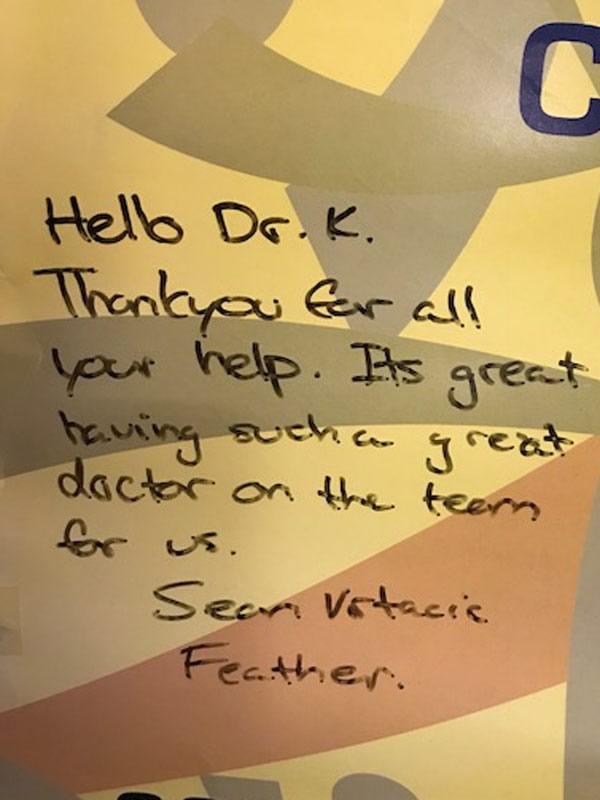 C
Hello Dr. K.
Thankyou for all
your help. Its great
having such a great
doctor on the team
for us.
Sean
Feather.